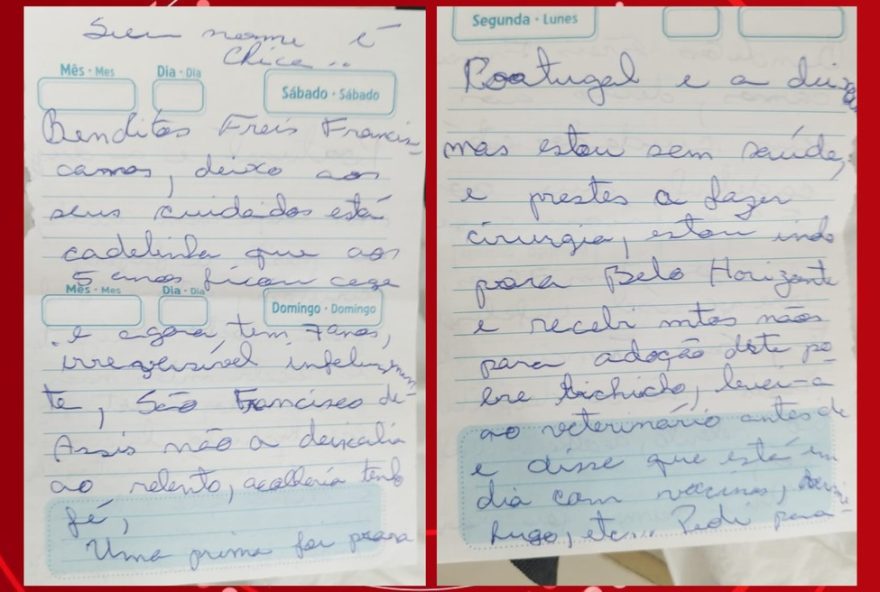 Seu nome é
Chica...
Mês • Mes
Dia • Dia
Sábado • Sábado
Benditos Freis Francis-
canos, deixo aos
seus cuidados está
cadelinha que aos
5 anos ficou cega
Mês • Mes
Dia • Dia
Domingo • Domingo
e agora tem 7 anos,
irreversível infelizmen
te, São Francisco de
Assis não a deixalia
ao relento, acolheria tenho
fé,
Uma prima foi para
Segunda • Lunes
Portugal e a deixou
mas estou sem saúde,
e prestes a fazer
cirurgia, estou indo
para Belo Horizonte
e recebi mtos nãos
para adoção deste po-
bre bichicho, levei-a
ao veterinário antes de
e disse que está em
dia com vacinas,
etc... Pedi para